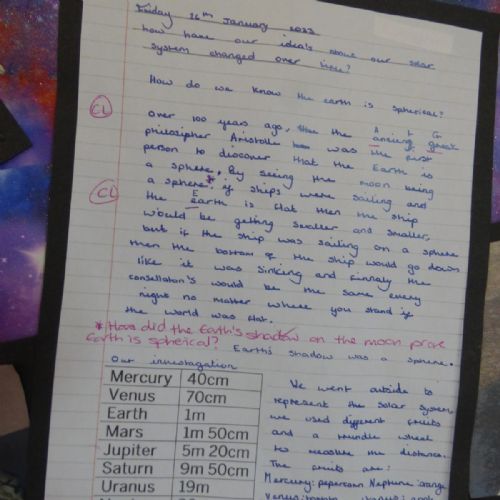 Friday 26th January 2023
how have our ideals about our solar
system changed over time?
How do we know the earth is spherical?
CL
over 100 years ago, the the ancient greek
A G
philosipher Aristotle was the first
person to discover that the Earth is
a sphere. By seeing the moon being
CL
a sphere.* if ships were sailing and
E
the earth is flat then the ship
would be getting smaller and smaller,
but if the ship was sailing on a sphere
then the bottom of the ship would go down
like it was sinking and finnaly the
consellaton's would be the same every
night no matter where you stand if
the world was flat.
* How did the Earth's shadow on the moon prove
Earth is spherical? Earths shadow was a sphere.
Our investagation
Mercury 40cm
Venus 70cm
Earth 1m
Mars 1m 50cm
Jupiter 5m 20cm
Saturn 9m 50cm
Uranus 19m
We went outside to
represent the solar system
we used different fruits
and a trundle wheel
to measure the distance.
The fruits are:
Mercury: pepercorn Neptune: orange